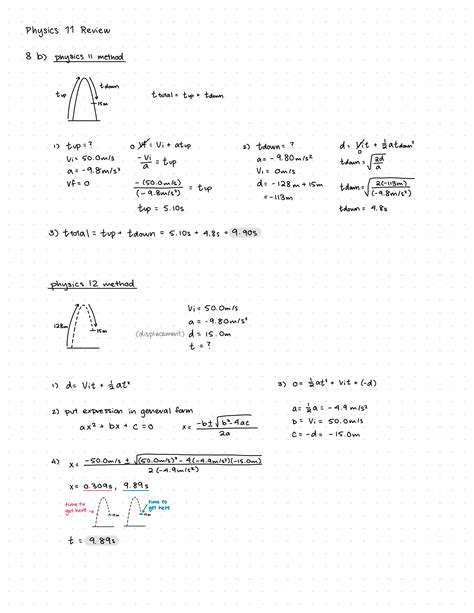 Physics 11 Review
8 b) physics 11 method
tup
tdown
15m
t total = tup + tdown
1) tup = ?
Vi = 50.0m/s
a = -9.8m/s²
Vf = 0
0 Vf = Vi + atup
-Vi/a = tup
-(50.0m/s)/(-9.8m/s²) = tup
tup = 5.10s
2) tdown = ?
a = -9.80m/s²
Vi = 0m/s
d = -128m + 15m
= -113m
d = Vit + ½atdown²
0
tdown = √(2d/a)
tdown = √(2(-113m)/(-9.8m/s²))
tdown = 4.8s
3) t total = tup + tdown = 5.10s + 4.8s = 9.90s
physics 12 method
128m
15m
Vi = 50.0m/s
a = -9.80m/s²
(displacement) d = 15.0m
t = ?
1) d = Vit + ½at²
2) put expression in general form
ax² + bx + c = 0
x = -b±√(b²-4ac)/2a
3) 0 = ½at² + Vit + (-d)
a = ½a = -4.9m/s²
b = Vi = 50.0m/s
c = -d = -15.0m
4) x = -50.0m/s ± √((50.0m/s)² - 4(-4.9m/s²)(-15.0m))/2(-4.9m/s²)
x = 0.309s, 9.89s
time to get here
15m
15m
time to get here
t = 9.89s